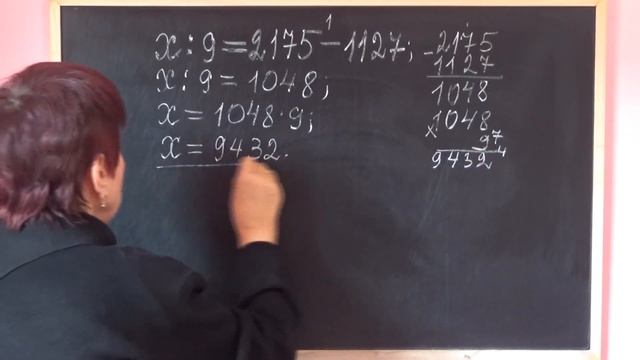 x : 9 = 2175 - 1127;
x : 9 = 1048;
x = 1048 · 9;
x = 9432.
1
- 2175
1127
1048
x 1048
9 7
9432 4